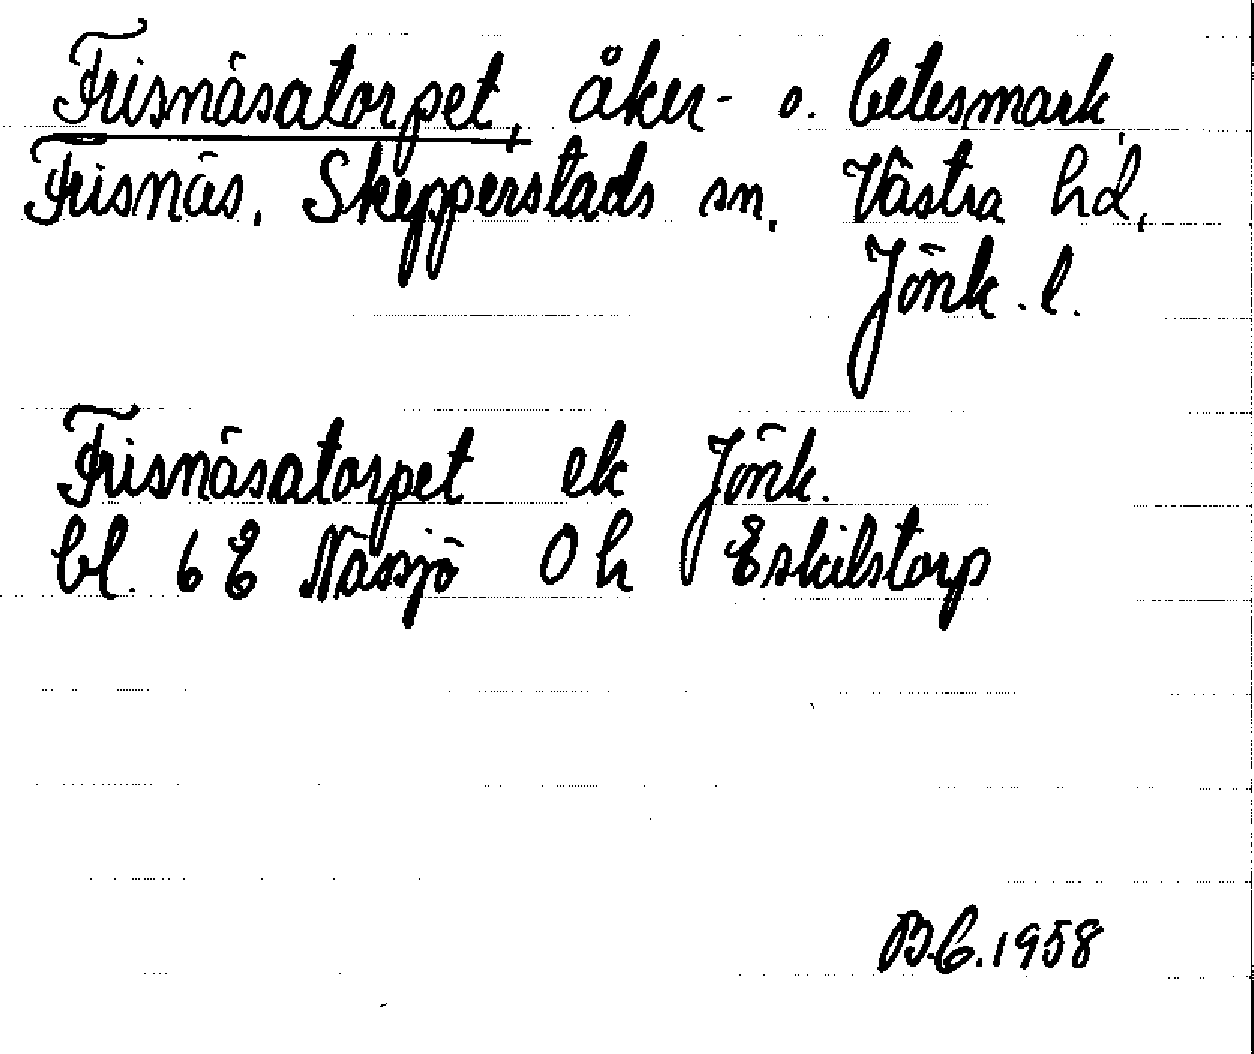 Frisnäsatorpet, åker- o. betesmark,
Frisnäs, Skepperstads sn, Västra hd,
Jönk. l.
Frisnäsatorpet ek Jönk.
bl. 6 E Nässjö 0 h Eskilstorp
B.C. 1958